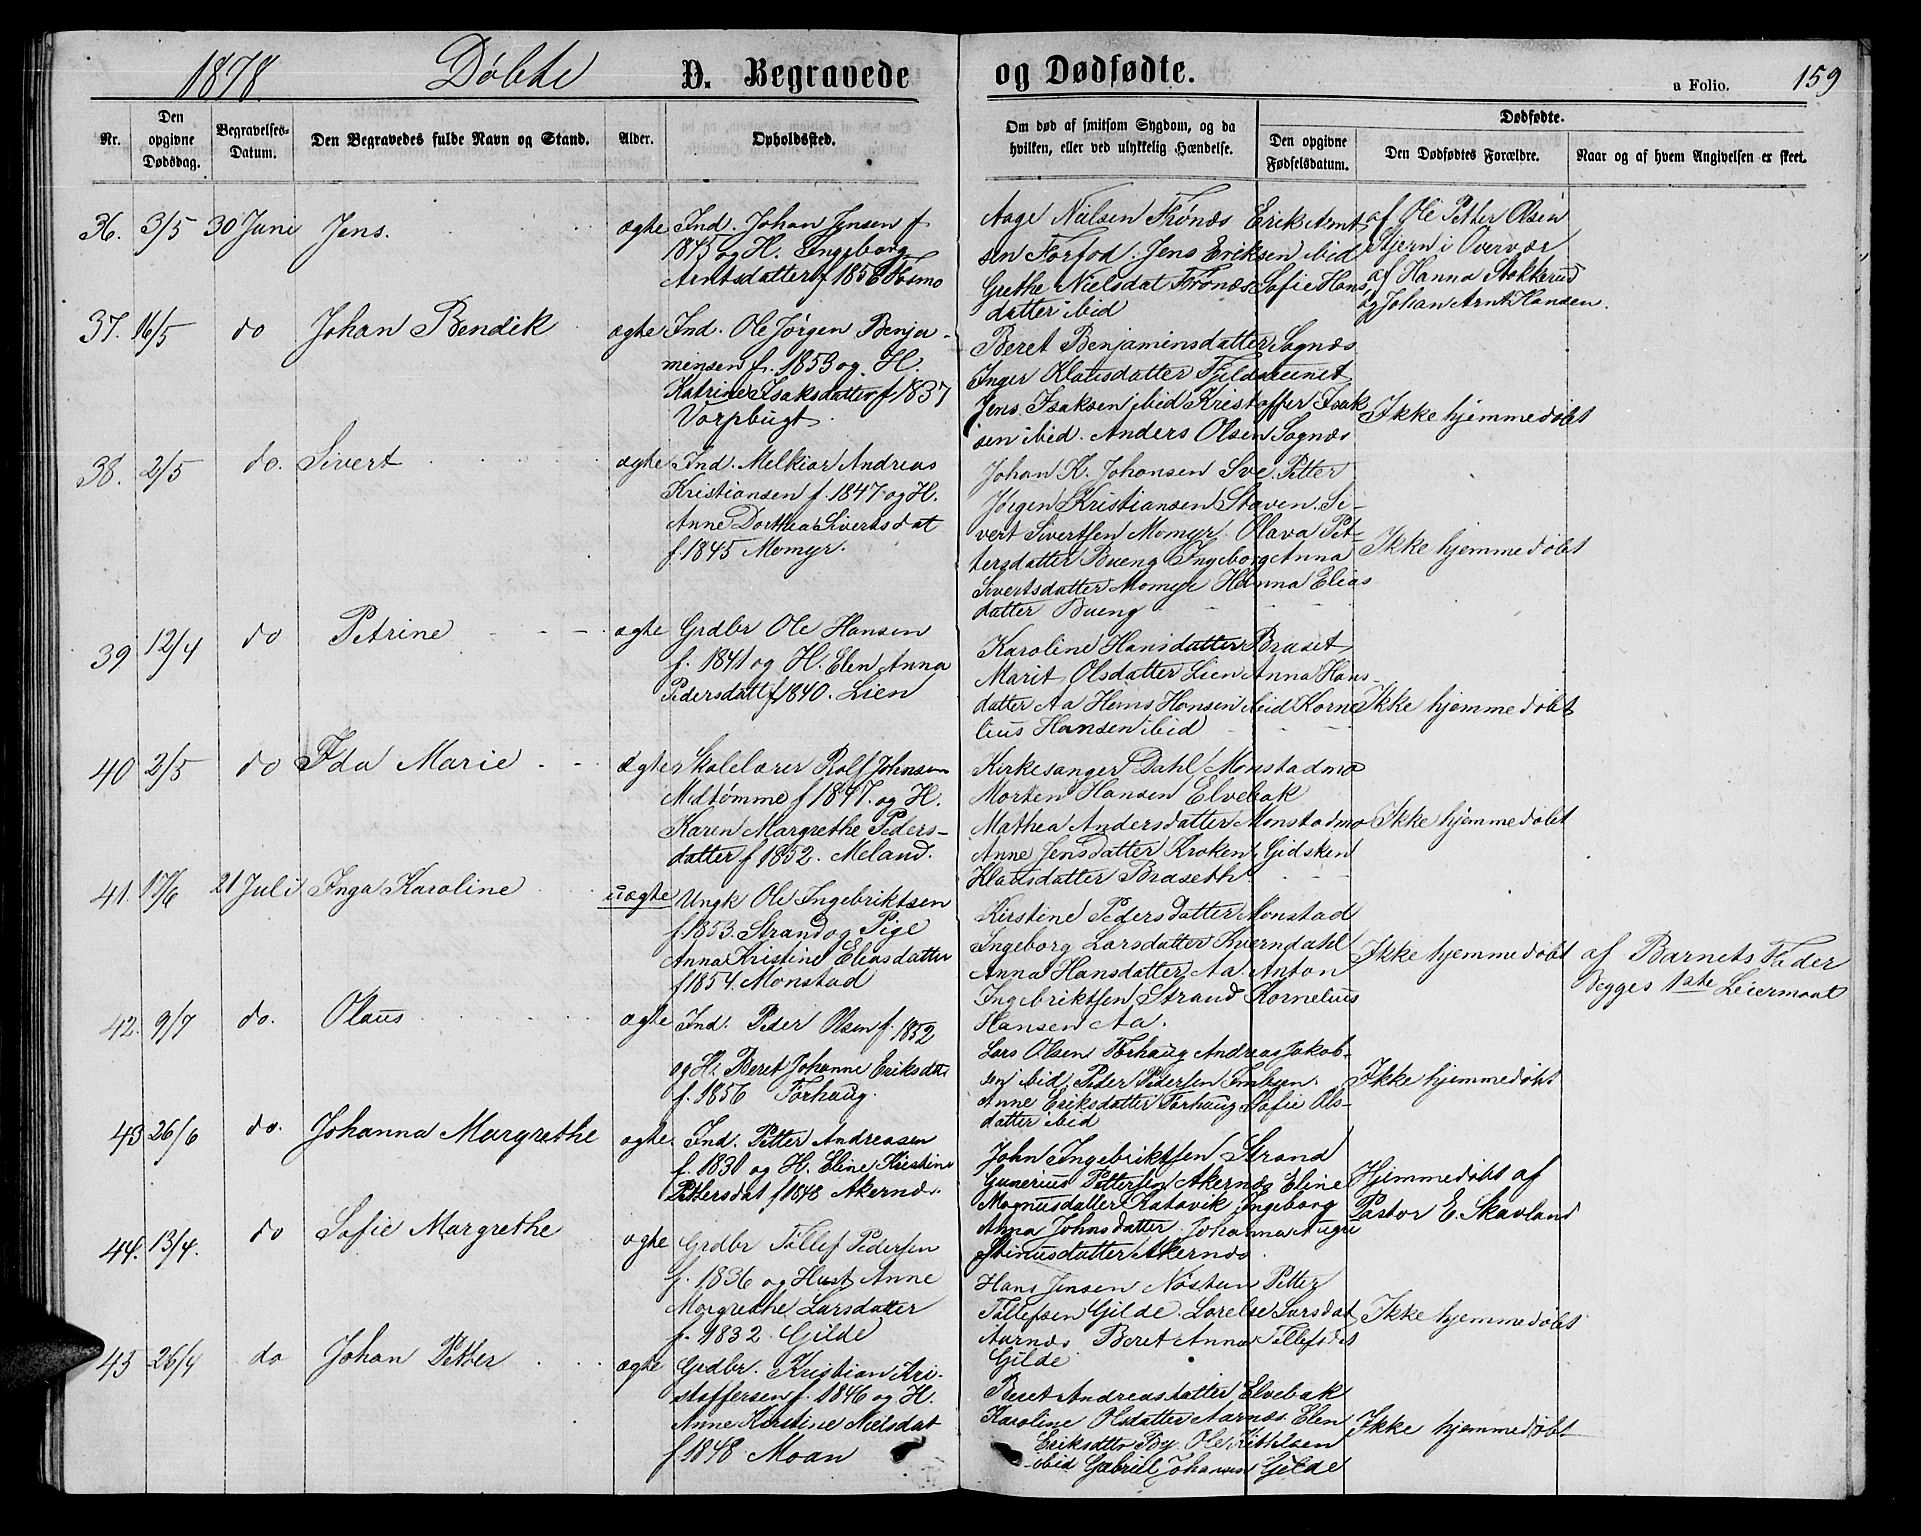 1878. Döbte D. Begravede og Dødfødte. a Folio. 159
Nr.
Den opgivne Dødsdag.
Begravelses-Datum.
Den Begravedes fulde Navn og Stand.
Alder.
Opholdssted.
Om død af smitsom Sygdom, og da hvilken, eller ved ulykkelig Hændelse.
Dødfødte.
Den opgivne Fødselsdatum.
Den Dødfødtes Forældre.
Naar og af hvem Angivelsen er skeet.
36. 3/5 30 Juni Jens. ægte
Ind. Johan Jensen f.
1845 og H. Ingeborg
Arntsdatter f 1856
Aage Nielsen Frönes Erik Arnt
sen Forfod. Jens Eriksen ibid
Grethe Nielsdat Frönes Sofie Hans
datter ibid
af Ole Petter Olsen
Stjern i Overvær
af Hanna Stokkerud
og Johan Arnt Hansen.
37. 16/5 do Johan Bendik ægte
Ind. Ole Jörgen Benja-
minsen f. 1853 og H.
Katrine Isaksdatter f. 1837
Vorpbugt.
Beret Benjaminsdatter Sagnes
Inger Klausdatter Fjeldseunet
Jens Isaksen ibid Kristoffer Isak
sen ibid. Anders Olsen Sagnes
Ikke hjemmedöbt
38. 2/5 do. Sivert ægte
Ind. Melkior Andreas
Kristiansen f. 1847 og H.
Anne Dorthea Sivertsdat
f. 1845 Momyr.
Johan K. Johansen Sve. Petter
Jörgen Kristiansen Staven. Si-
vert Sivertsen Momyr. Olava Pet-
tersdatter Bueng Ingeborg Anna
Sivertsdatter Momyr Hanna Elias
datter Bueng
Ikke hjemmedöbt
39 12/4 do Petrine ægte
Grdbr Ole Hansen
f. 1841 og H. Elen Anna
Pedersdatt f 1840. Lien
Karoline Hansdatter Braset
Marit Olsdatter Lien Anna Hans-
datter Aa Hems Hansen ibid Korne
lius Hansen ibid
Ikke hjemmedöbt
40 2/5 do Ida Marie ægte
Skolelærer Rolf Johnsen
Midtömme f 1847. og H.
Karen Margrethe Peders-
datter f 1852. Meland.
Kirkesanger Dahl Monstadmo
Morten Hansen Elvebak
Mathea Andersdatter Monstadmo
Anne Jensdatter Kroken. Gidsken
Klausdatter Braseth.
Ikke hjemmedöbt
41. 17/6 21 Juli Inga Karoline uægte
Ungk Ole Ingebriktsen
f. 1853. Strand og Pige
Anna Kristine Eliasdatter
f 1854. Monstad
Kirstine Pedersdatter Monstad
Ingeborg Larsdatter Kverndahl
Anna Hansdatter Aa. Anton
Ingebriktsen Strand Kornelius
Hansen Aa.
Ikke hjemmedöbt
af Barnets Fader
Begges 1ste Leiermaal
42. 9/7 do. Olaus ægte
Ind. Peder Olsen f. 1852
og H. Beret Johanne Eriksdat.
f. 1856 Torhaug.
Lars Olsen Torhaug Andreas Jakob-
sen ibid Peder Pedersen
Anne Eriksdatter Torhaug Sofie Ols-
datter ibid
Ikke hjemmedöbt
43 26/6 do. Johanna Margrethe ægte
Ind. Petter Andreasen
f. 1831 og H. Eline Kristine
Pettersdat f 1848 Akernes.
John Ingebriktsen Strand
Gunerius Pettersen Akernes Eline
Magnusdatter Ratavik Ingeborg
Anna Johnsdatter. Johanna
Stinusdatter Akernes.
Hjemmedöbt af
Pastor E. Skavland
44. 13/4. do Sofie Margrethe ægte
Grdbr Tollef Pedersen
f. 1836 og Hust Anne
Margrethe Larsdatter
f. 1832. Gilde
Hans Jensen Nöstan Petter
Tollefsen Gilde. Lorelse Larsdat
Aarnes Beret Anna Tollefsdat
Gilde
Ikke hjemmedöbt
45 26/4 do Johan Petter ægte
Grdbr. Kristian Kri-
stoffersen f. 1846 og H.
Anne Kirstine Nielsdat
f. 1848 Moan
Beret Andreasdatter Elvebak
Karoline Olsdatter Aarnes Elen
Eriksdtter By Ole Kittelsen
ibid Gabriel Johansen Gilde
Ikke hjemmedöbt